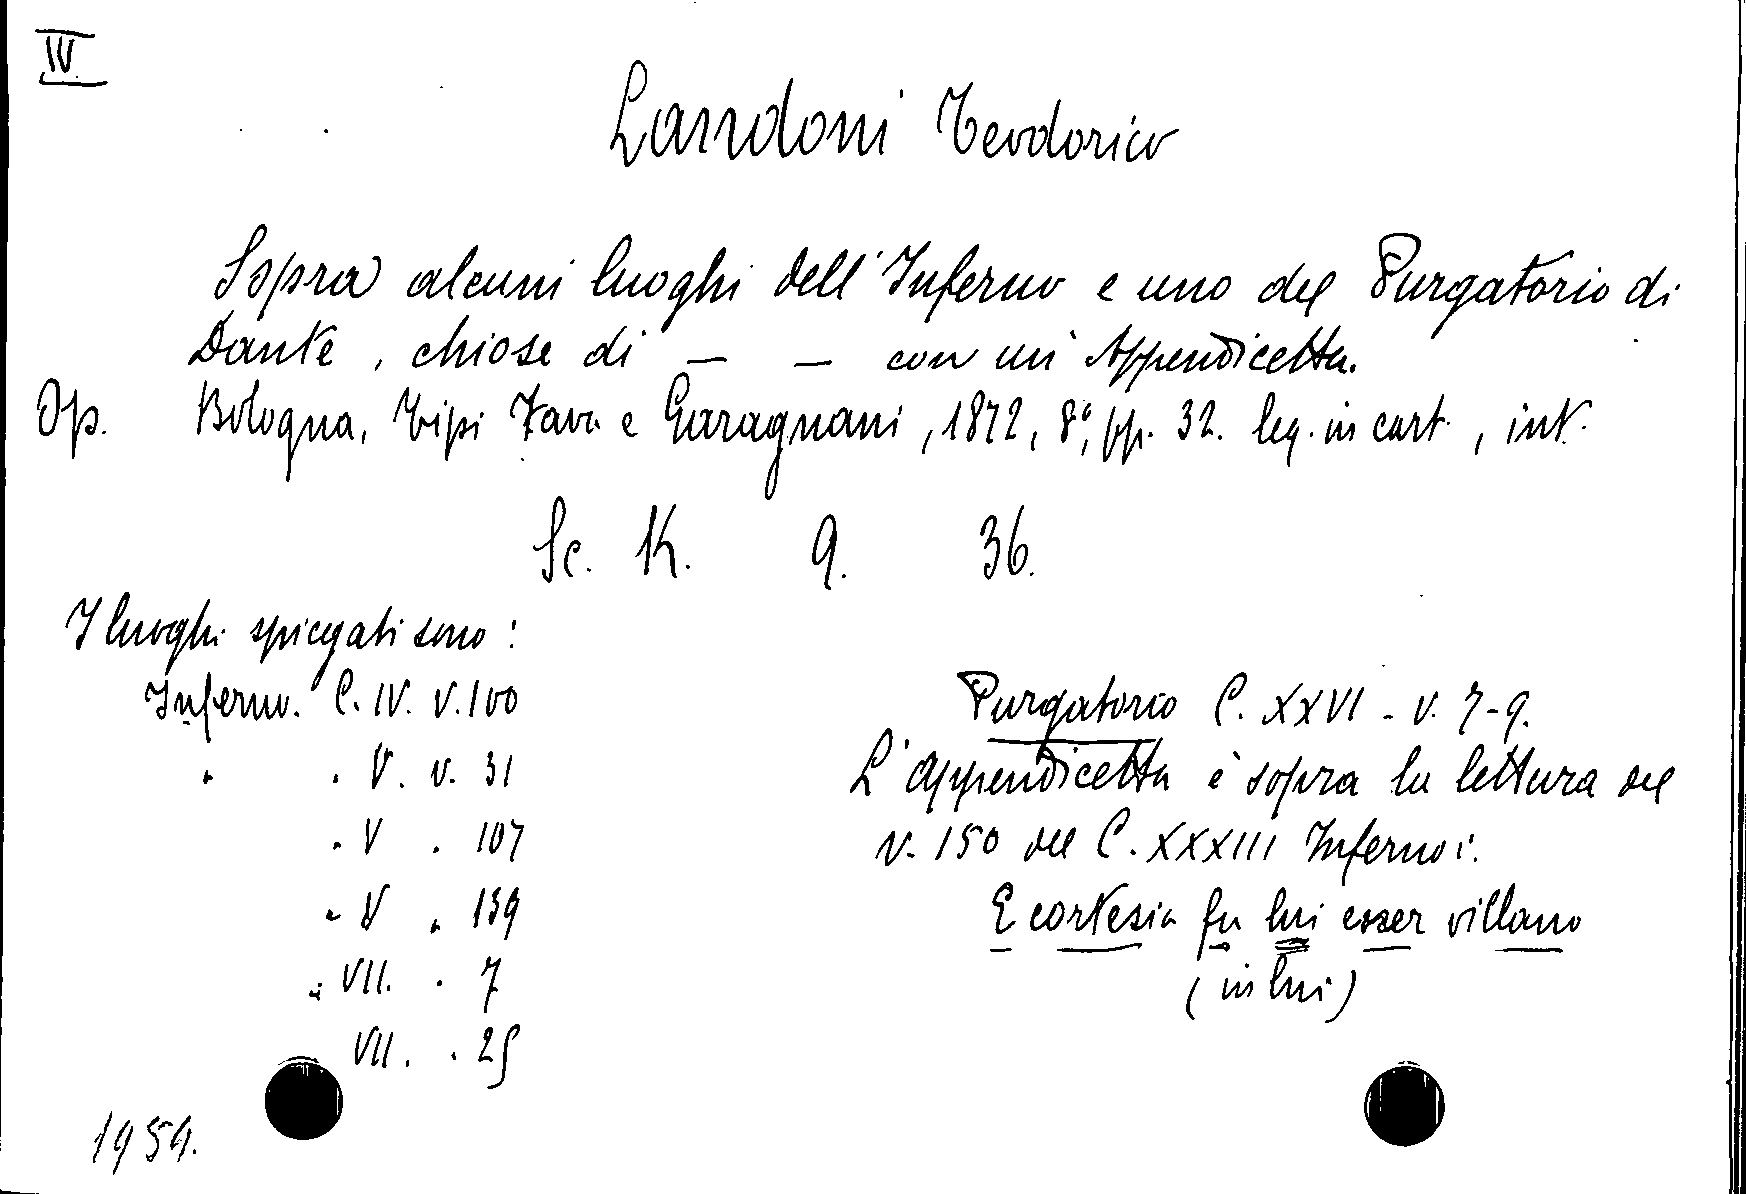 IV
Landoni Teodorico
Sopra alcuni luoghi dell'Inferno e uno del Purgatorio di
Dante, chiose di — — con un'Appendicetta.
Op. Bologna, Tipi Fava e Garagnani, 1872, 8°, pp. 32. leg. in cart., int.
Sc. K. 9. 36.
I luoghi spiegati sono:
Inferno. C. IV. v. 100
" " V. v. 31
" V " 107
" V " 139
" VII. " 7
VII. " 25
Purgatorio C. XXVI - v. 7-9.
L'appendicetta è sopra la lettura del
v. 150 del C. XXXIII Inferno:
E cortesia fu lui esser villano
(in lui)
1959.